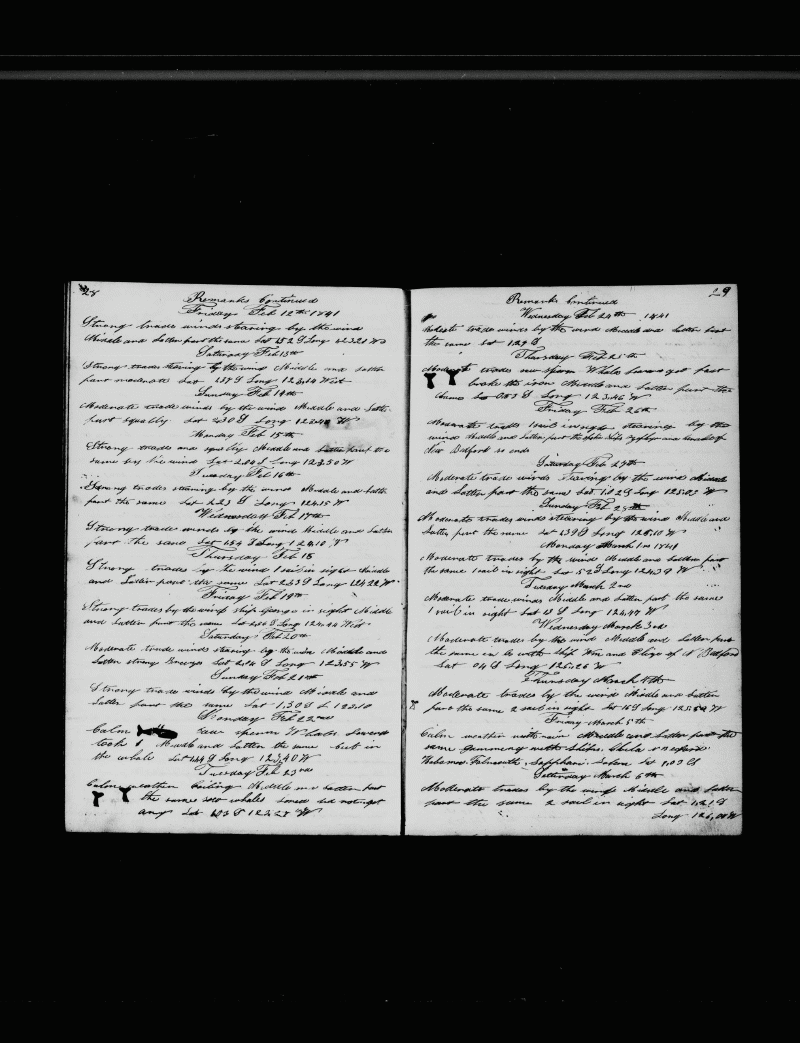 28
Remarks Continued
Friday Feb 12th 1841
Strong trade winds stearing by the wind
Middle and Latter part the same Lat 152 S Long 12321 W
Saturday Feb 13th
Strong trades stearing by the wind Middle and Latter
part moderate Lat 237 S Long 123,14 West
Sunday Feb 14th
Moderate trade winds by the wind Middle and Latter
part squally Lat 230 S Long 123,40 W
Monday Feb 15th
Strong trades and squally Middle and Latter part the
same by the wind Lat 204 S Long 123,50 W
Tuesday Feb 16th
Strong trades stearing by the wind Middle and Latter
part the same Lat 223 S Long 124,15 W
Wednesday Feb 17th
Strong trade winds by the wind Middle and Latter
part the same Lat S Long 124,10
Thursday Feb 18
Strong trades by the wind 1 sail in sight Middle
and Latter part the same Lat 253 S Long 124,22 W
Friday Feb 19th
Strong trades by the wind ship George in sight Middle
and Latter part the same Lat S Long West
Saturday Feb 20th
Moderate trade winds stearing by the wind Middle and
Latter strong Breezes Lat S Long 123,55 W
Sunday Feb 21st
Strong trade winds by the wind Middle and
Latter part the same Lat 1,30 S L 123,10
Monday Feb 22nd
Calm saw sperm Whales Lowerd
took 1 Middle and Latter the same cut in
the whale Lat S Long 123,40 W
Tuesday Feb 23rd
Calm weather Boiling Middle and Latter part
the same saw whales Lowerd did not get
any Lat 103 S 123,28 W
29
Remarks Continued
Wednesday Feb 24th 1841
Moderate trade winds by the wind Middle and Latter part
the same Lat 129 S
Thursday Feb 25th
Moderate trades saw sperm Whales Lowerd got fast
broke the iron Middle and Latter part the
same Lat 0,53 S Long 123,46 W
Friday Feb 26th
Moderate trades 1 sail in sight stearing by the
wind Middle and Latter part the spoke ships Zephyr and of
New Bedford so ends
Saturday Feb 27th
Moderate trade winds stearing by the wind Middle
and Latter part the same Lat S Long 125,03 W
Sunday Feb 28th
Moderate trades winds stearing by the wind Middle and
Latter part the same Lat 39 S Long 125,10 W
Monday March 1st 1841
Moderate trades by the wind Middle and Latter part
the same 1 sail in sight Lat 52 S Long W
Tuesday March 2nd
Moderate trade winds Middle and Latter part the same
1 sail in sight Lat 13 S Long 124,47 W
Wednesday March 3rd
Moderate trades by the wind Middle and Latter part
the same in Co with ship Wm and Eliza of N Bedford
Lat 04 S Long 125,26 W
Thursday March 4th
Moderate trades by the wind Middle and Latter
part the same 2 sail in sight Lat 16 S Long 125,50 W
Friday March 5th
Calm weather with rain Middle and Latter part the
same Gamming with Ships
Falmouth Sapphire Salem Lat 1,03 S
Saturday March 6th
Moderate trades by the wind Middle and Latter
part the same 2 sail in sight Lat 1,21 S
Long 126,00 W